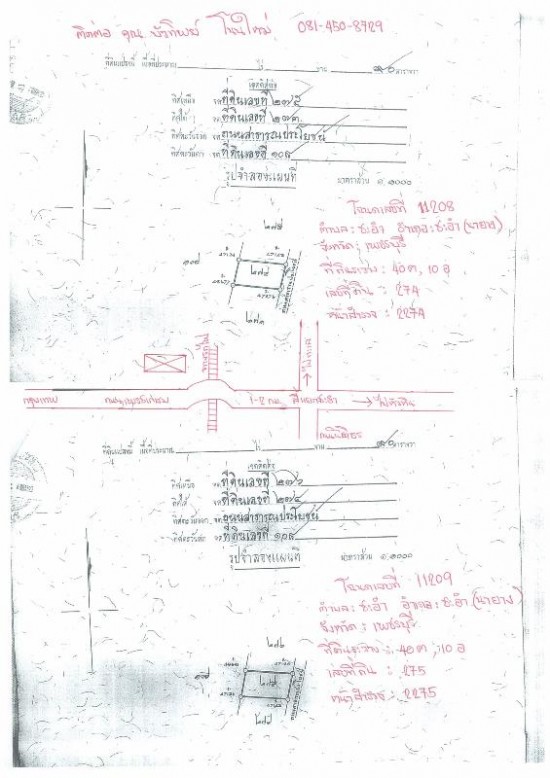 ติดต่อ คุณ บัวทิพย์ โนนใหญ่ 081-450-8729
ที่ดินแปลงนี้ เนื้อที่ประมาณ ไร่ งาน ๕๐ ตารางวา
เขตติดต่อ
ทิศเหนือ จด ที่ดินเลขที่ ๒๗๕
ทิศใต้ จด ที่ดินเลขที่ ๒๗๓
ทิศตะวันออก จด ถนนสาธารณประโยชน์
ทิศตะวันตก จด ที่ดินเลขที่ ๑๐๘
รูปจำลองแผนที่ มาตราส่วน ๑:๑๐๐๐
โฉนดเลขที่ 11208
ตำบล: ชะอำ อำเภอ: ชะอำ (นายาง)
จังหวัด: เพชรบุรี
๒๗๕
ที่ดินระวาง: 40 ต, 10 อ
๒๗๔
เลขที่ดิน: 274
หน้าสำรวจ: 2274
๒๗๓
ทางรถไฟ
กรุงเทพ ถนนเพชรเกษม 1-2 กม. → ไปหัวหิน
ที่ดินแปลงนี้ เนื้อที่ประมาณ ไร่ งาน ๕๐ ตารางวา
เขตติดต่อ
ทิศเหนือ จด ที่ดินเลขที่ ๒๗๖
ทิศใต้ จด ที่ดินเลขที่ ๒๗๔
ทิศตะวันออก จด ถนนสาธารณประโยชน์
ทิศตะวันตก จด ที่ดินเลขที่ ๑๐๘
รูปจำลองแผนที่ มาตราส่วน ๑:๑๐๐๐
โฉนดเลขที่ 11209
ตำบล: ชะอำ อำเภอ: ชะอำ (นายาง)
จังหวัด: เพชรบุรี
๒๗๖
ที่ดินระวาง: 40 ต, 10 อ
เลขที่ดิน: 275
หน้าสำรวจ: 2275